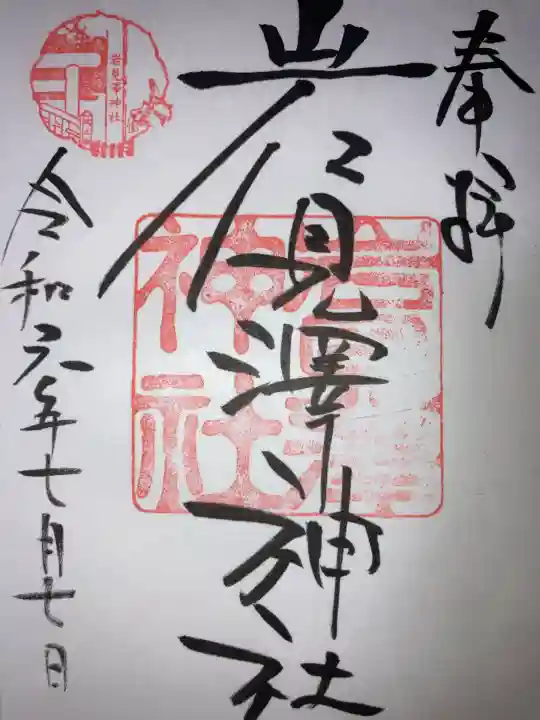 奉拝
岩見澤神社
岩見澤神社
岩見澤神社
令和元年七月七日